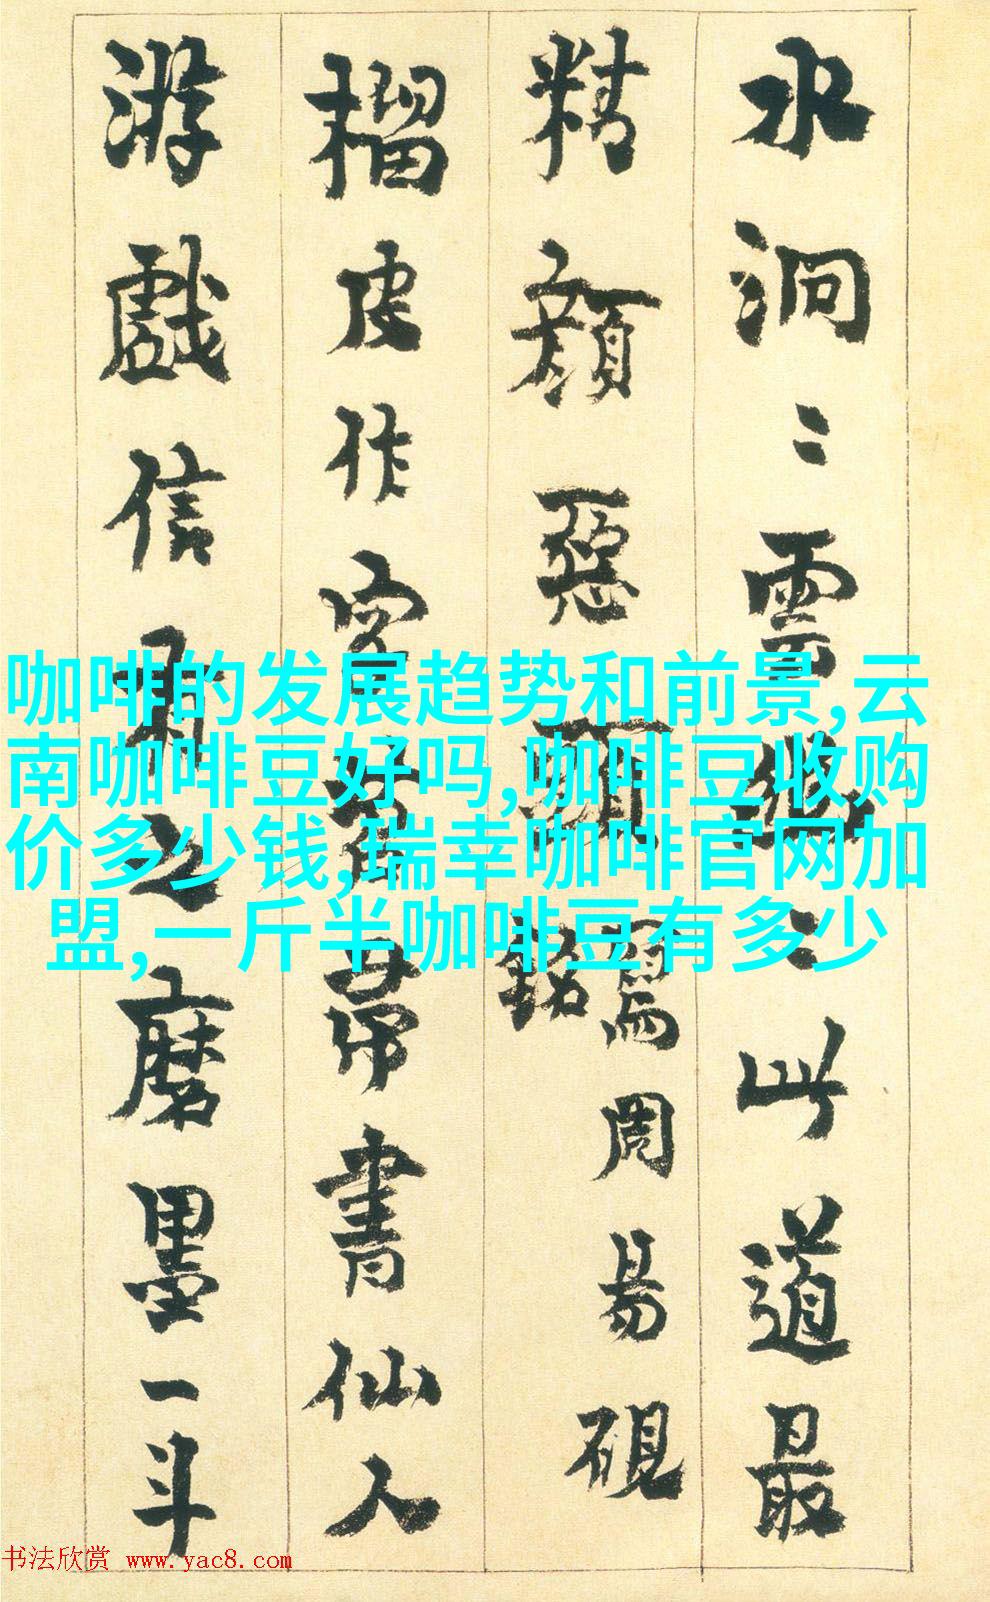 水洞〻雲繳〻此道最
精顏惡頭
銘
駡周易硯
榴皮作字苕帚書仙人
游戲信有之磨墨一斗
咖啡的发展趋势和前景,云
南咖啡豆好吗,咖啡豆收购
价多少钱,瑞幸咖啡官网加
盟,一斤半咖啡豆有多少
书法欣赏 www.yac8.com